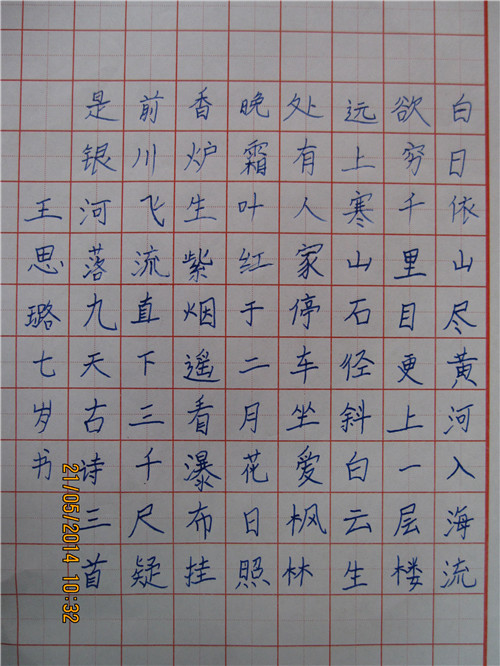 白日依山尽黄河入海流
欲穷千里目更上一层楼
远上寒山石径斜白云生
处有人家停车坐爱枫林
晚霜叶红于二月花日照
香炉生紫烟遥看瀑布挂
前川飞流直下三千尺疑
是银河落九天古诗三首
王思璐七岁书
21/05/2014 10:32